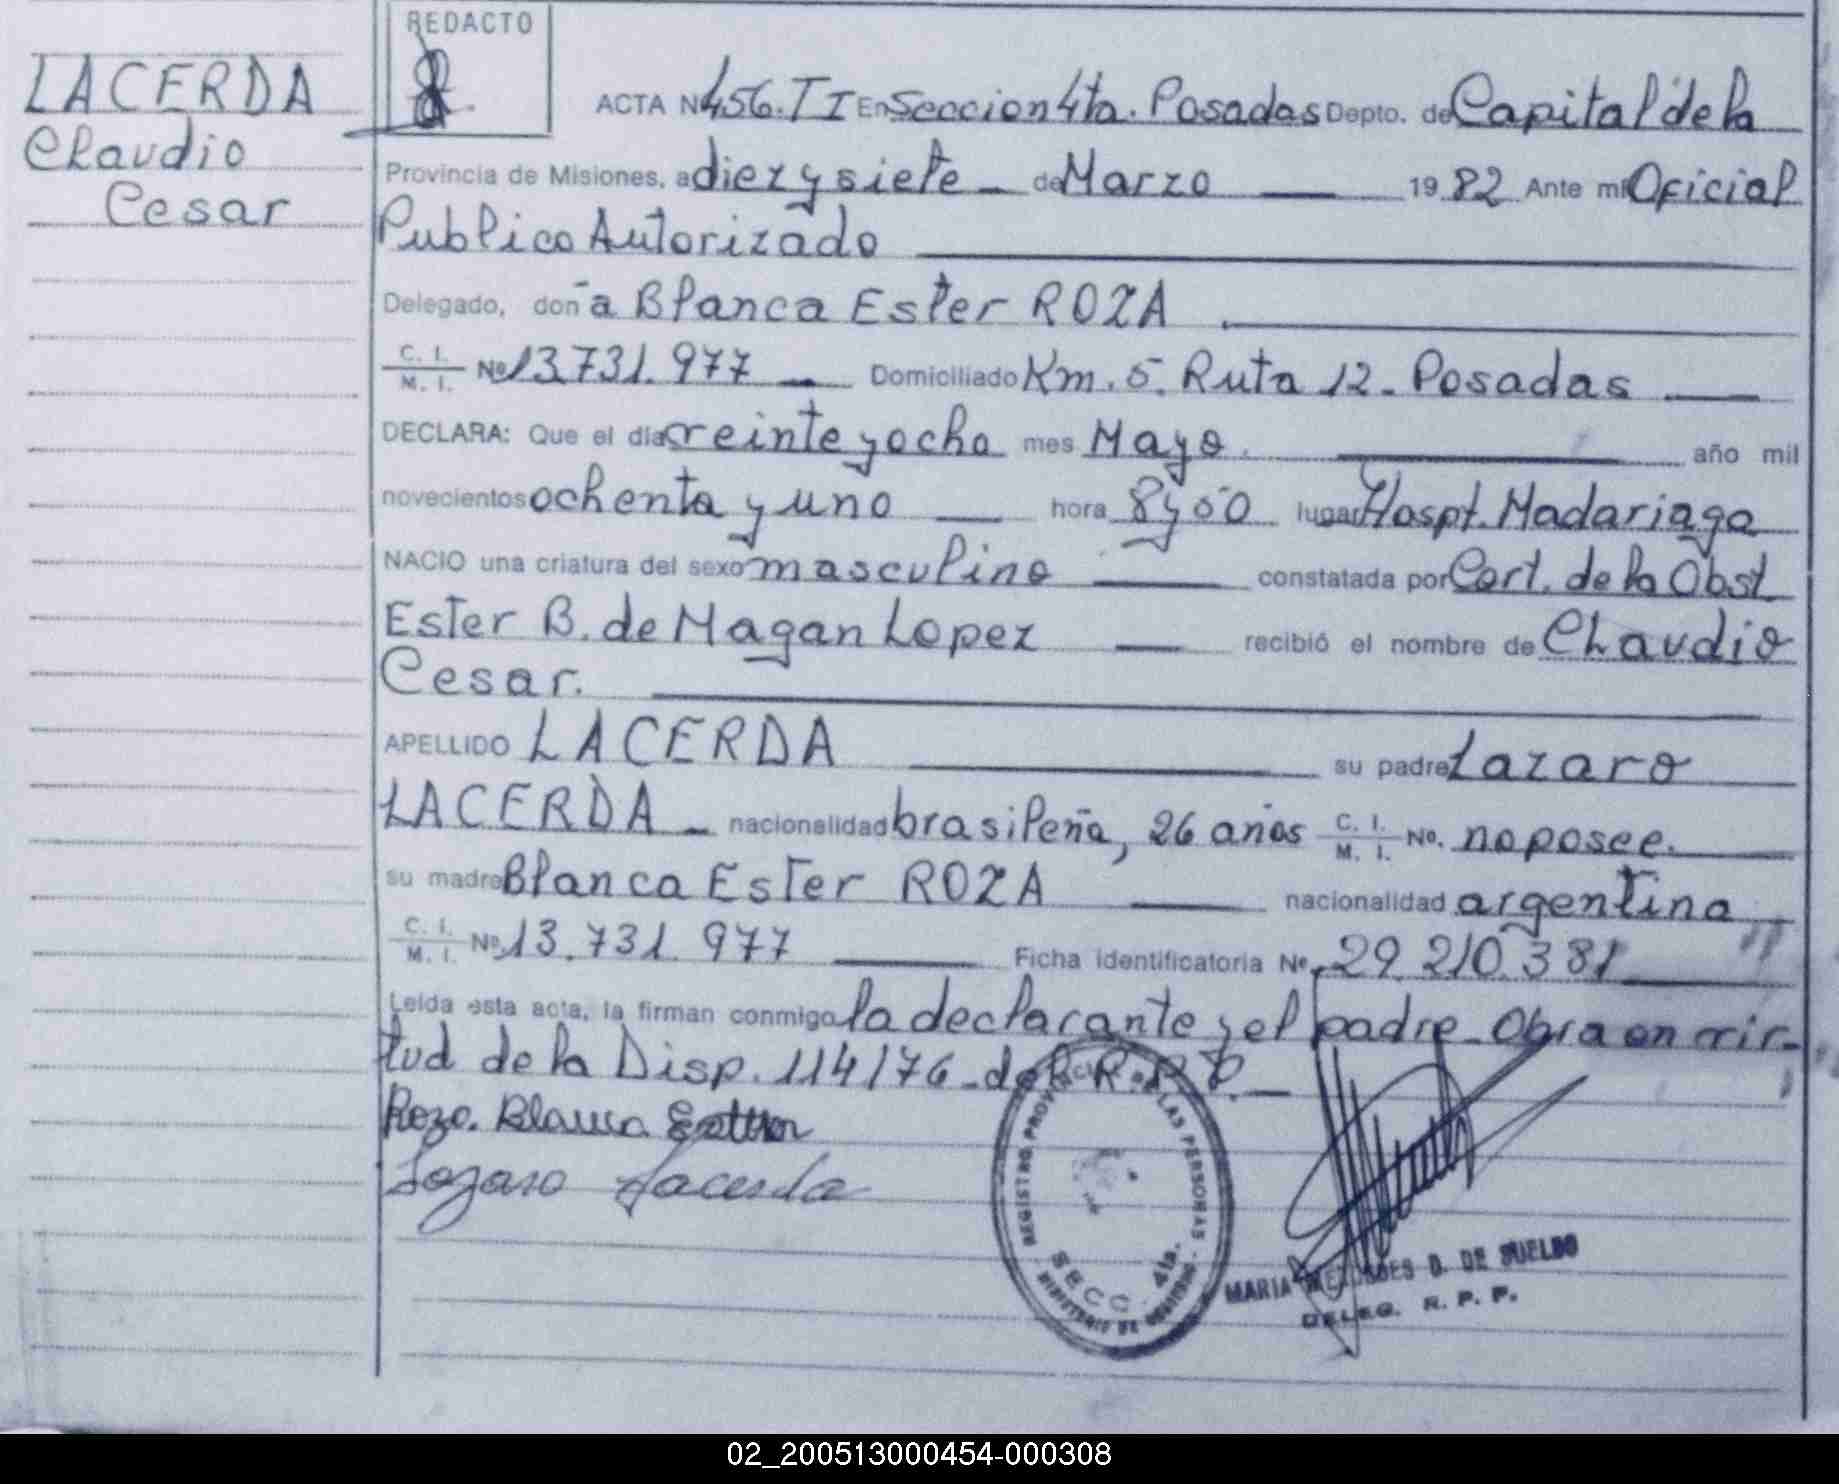 REDACTO
LACERDA
Claudio
Cesar
ACTA Nº 456. TI En Seccion 4ta. Posadas Depto. de Capital de la
Provincia de Misiones, a diez y siete de Marzo 19 82 Ante mi Oficial
Publico Autorizado
Delegado, don a Blanca Ester ROZA
C. I. M. I. Nº 13.731.977 Domiciliado Km. 5. Ruta 12 - Posadas
DECLARA: Que el día veinte y ocho mes Mayo. año mil
novecientos ochenta y uno hora 8 y 50 lugar Hospt. Madariaga
NACIO una criatura del sexo masculino constatada por Cert. de la Obst
Ester B. de Magan Lopez recibió el nombre de Claudio
Cesar.
APELLIDO LACERDA su padre Lazaro
LACERDA nacionalidad brasileña, 26 años C. I. M. I. No. no posee.
su madre Blanca Ester ROZA nacionalidad argentina
C. I. M. I. Nº 13.731.977 Ficha identificatoria Nº 29.210.381
Leída esta acta, la firman conmigo la declarante y el padre - Obra en vir-
tud de la Disp. 114/76 - del R. P. P.
Roza. Blanca Ester
Lazaro Lacerda
REGISTRO PROVINCIAL DE LAS PERSONAS - MINISTERIO DE GOBIERNO -
SECC. 4ta.
MARIA MERCEDES D. DE SUELDO
DELEG. R. P. P.
02_200513000454-000308